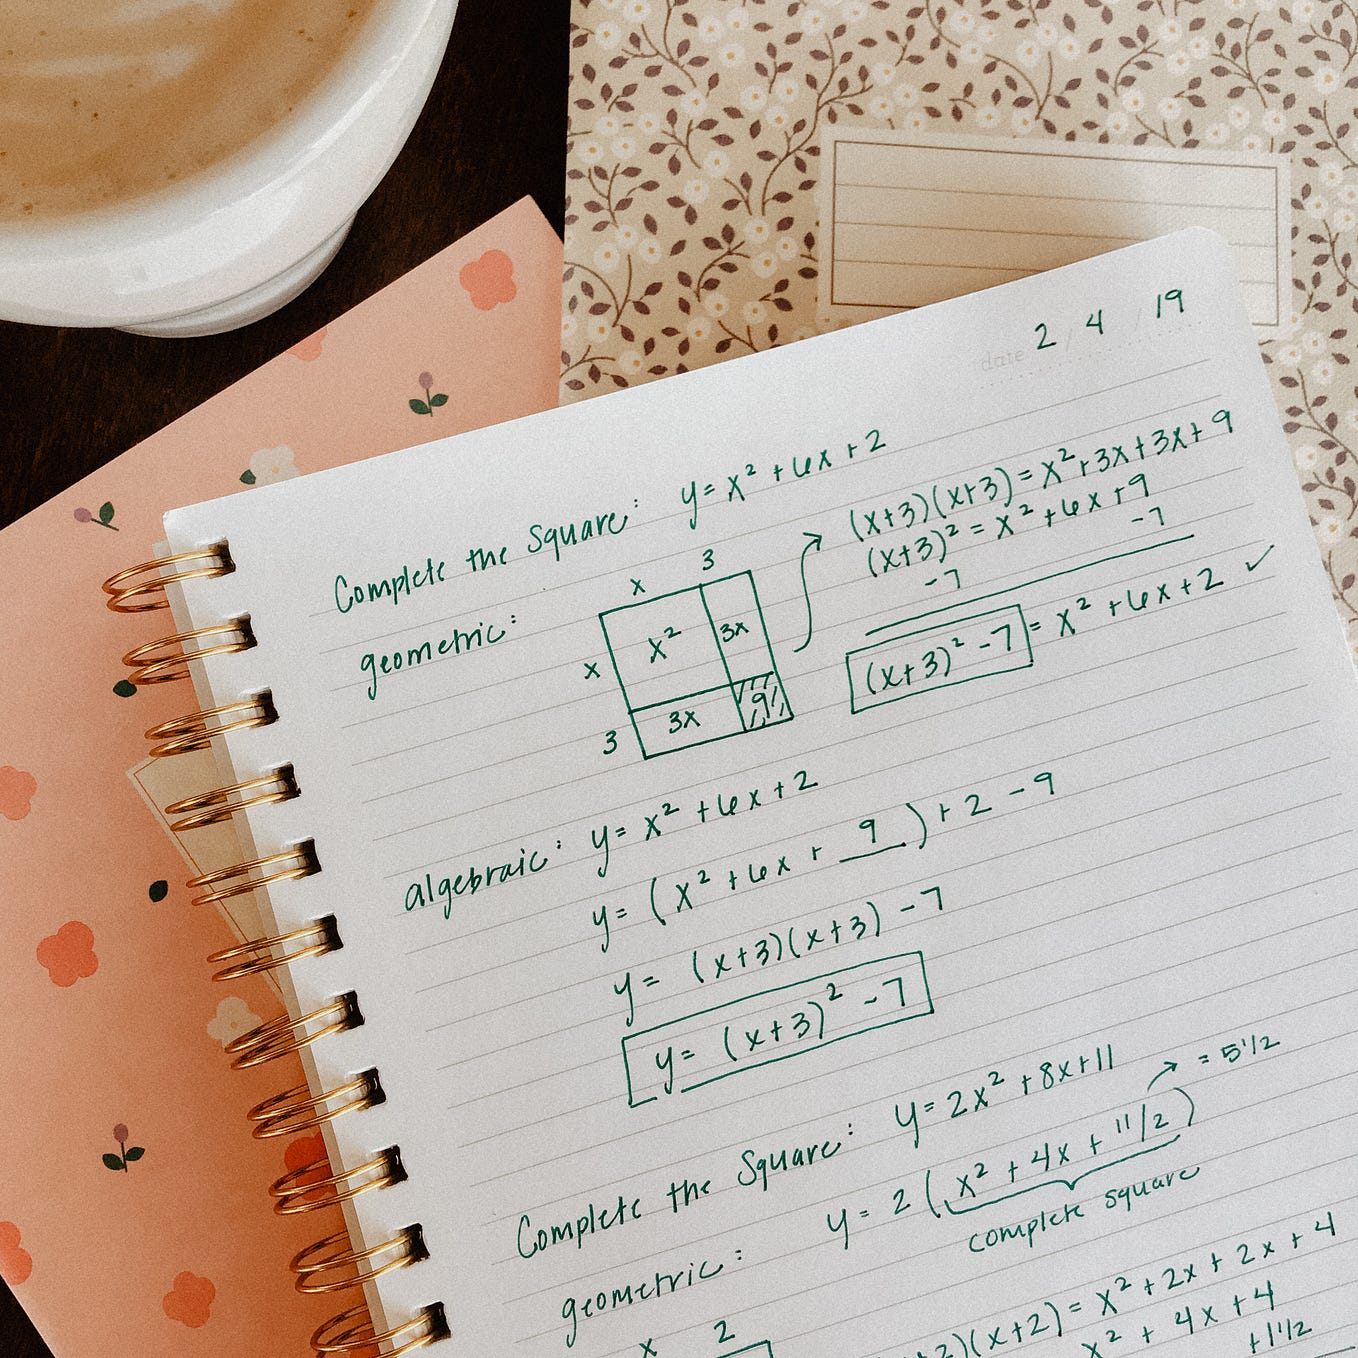 date 2 / 4 / 19
Complete the Square: y = x² + 6x + 2
geometric:
x 3
x x² 3x
3 3x 9
(x+3)(x+3) = x² + 3x + 3x + 9
(x+3)² = x² + 6x + 9
-7 -7
(x+3)² - 7 = x² + 6x + 2 ✓
algebraic: y = x² + 6x + 2
y = (x² + 6x + 9) + 2 - 9
y = (x+3)(x+3) - 7
y = (x+3)² - 7
Complete the Square: y = 2x² + 8x + 11
y = 2(x² + 4x + 11/2) → = 5 1/2
complete square
geometric:
x 2
)(x+2) = x² + 2x + 2x + 4
x² + 4x + 4
+1 1/2